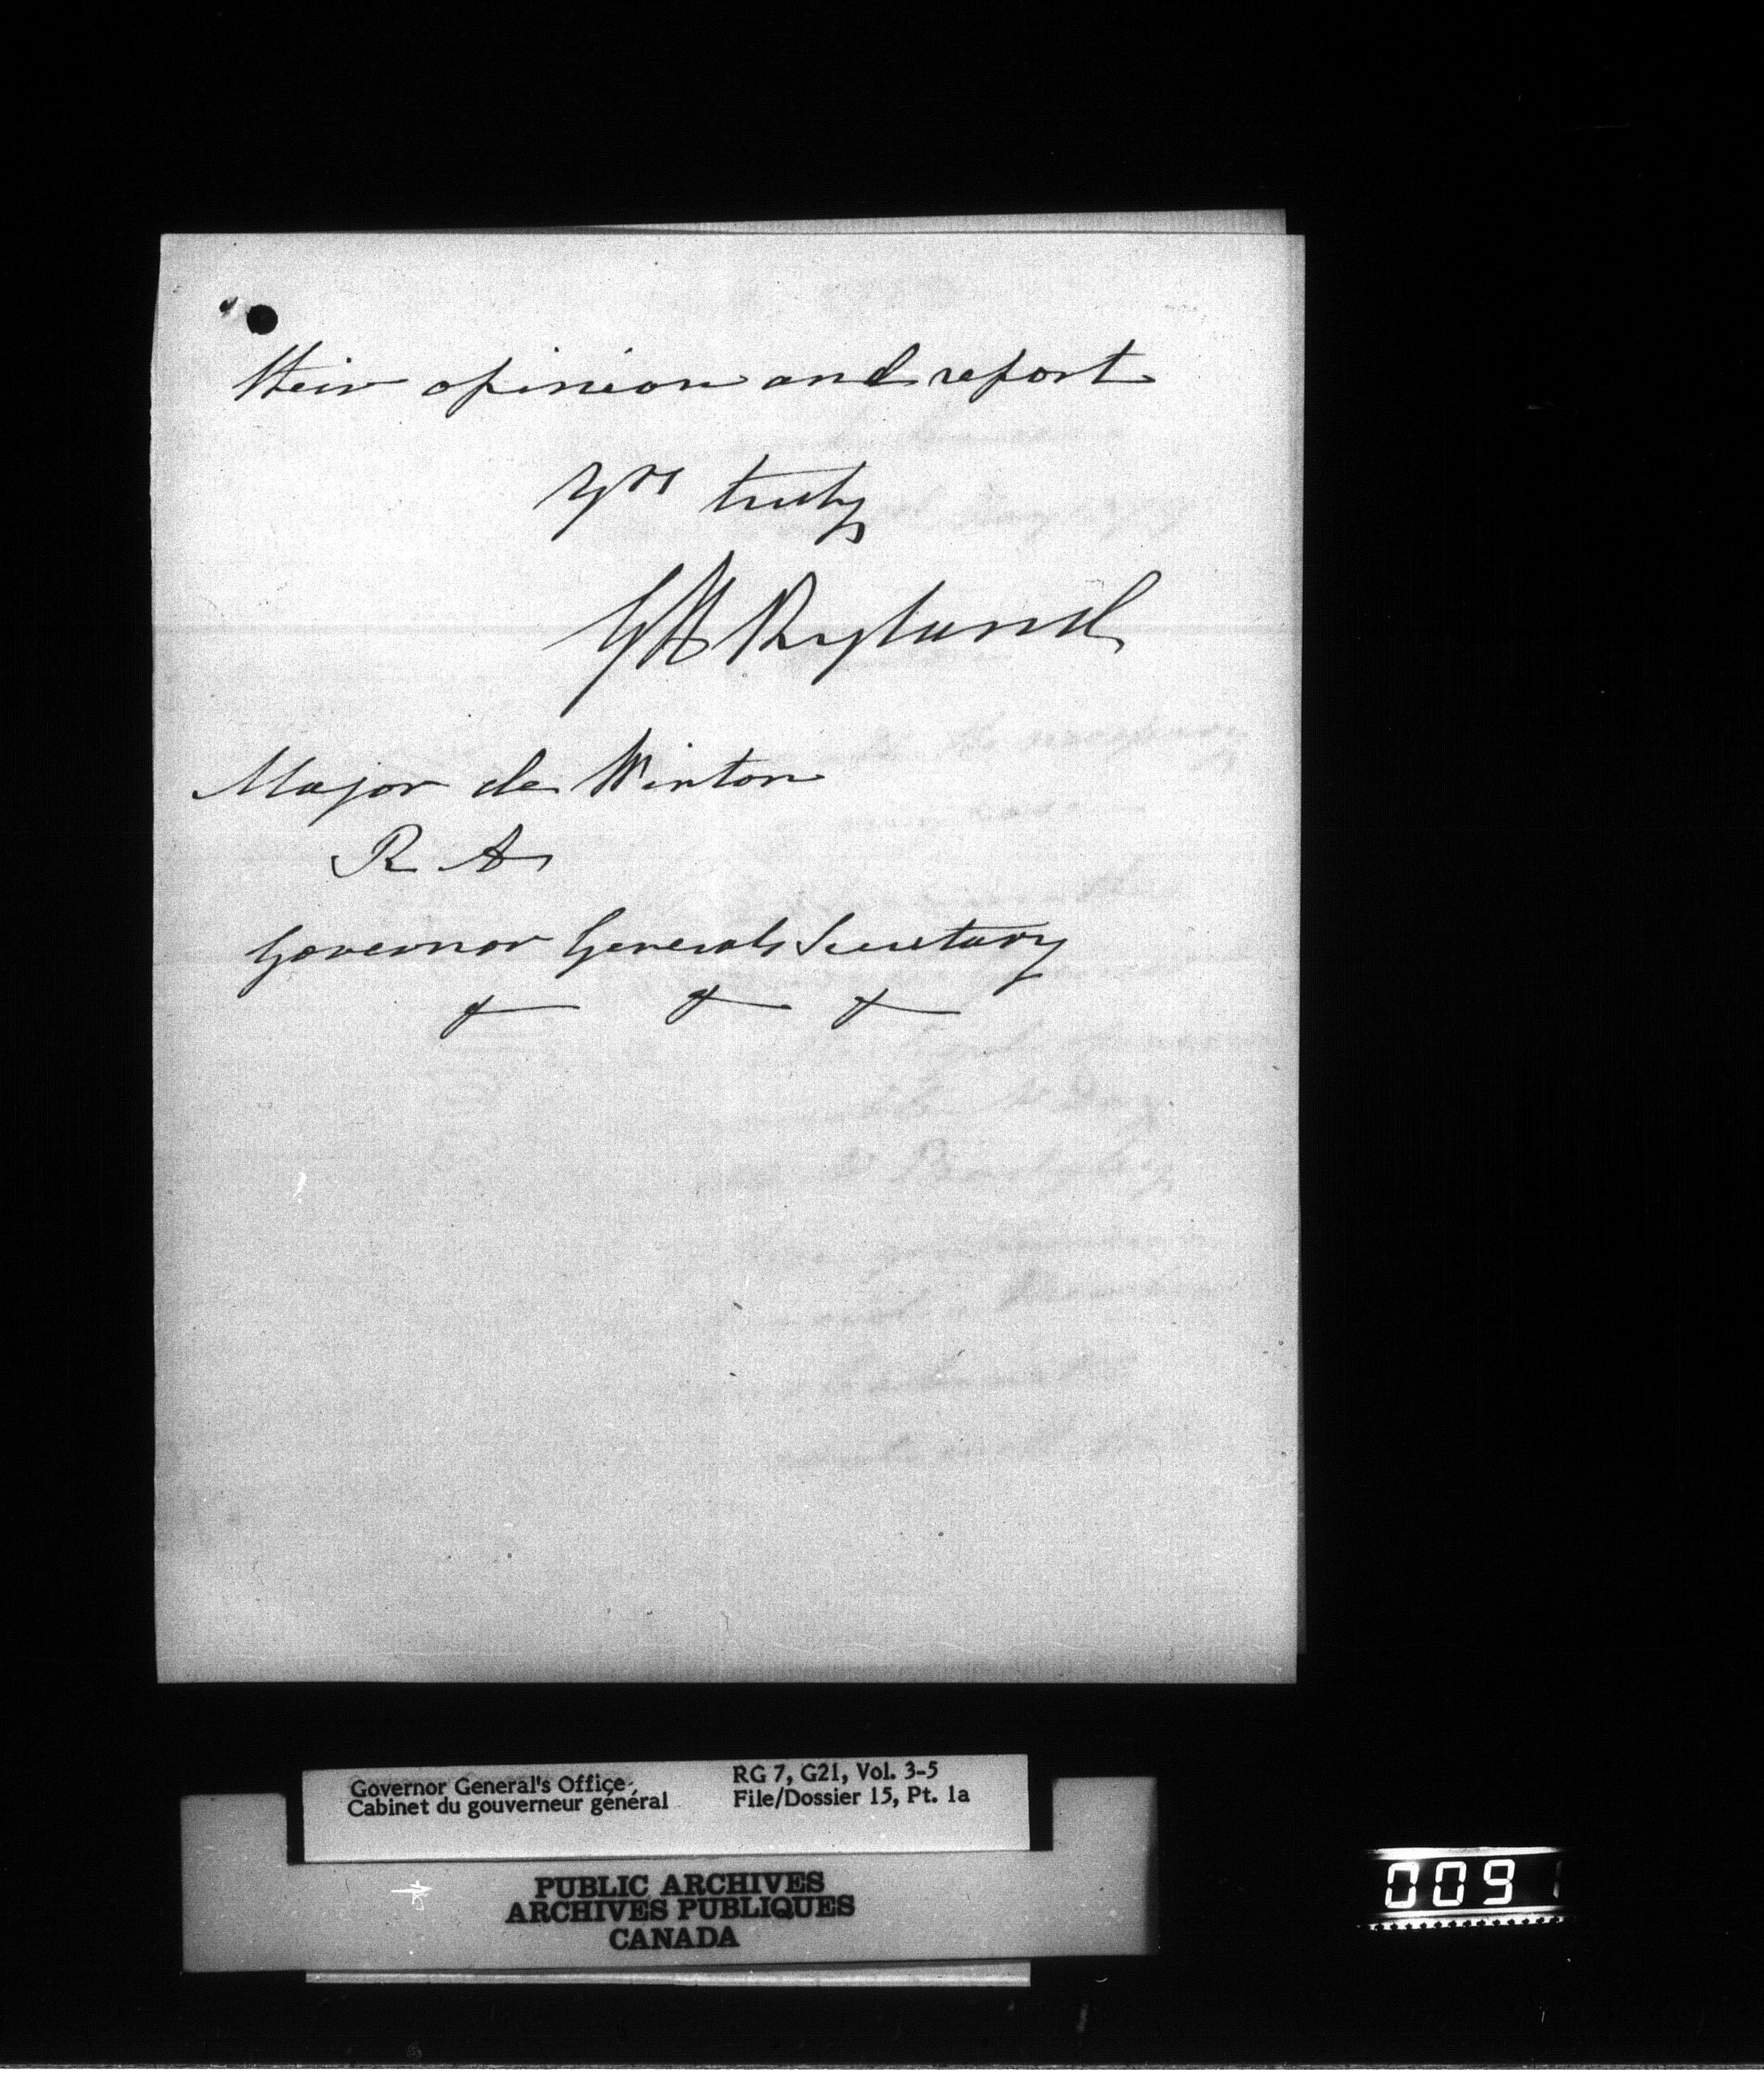 their opinion and report
Yrs truly
GH Ryland
Major de Winton
R A
Governor Generals Secretary
Governor General's Office
Cabinet du gouverneur général
RG 7, G21, Vol. 3-5
File/Dossier 15, Pt. 1a
PUBLIC ARCHIVES
ARCHIVES PUBLIQUES
CANADA
0091